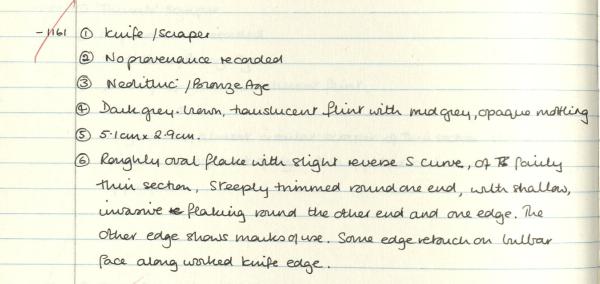 -1161 ① Knife / Scraper
② No provenance recorded
③ Neolithic / Bronze Age
④ Dark grey-brown, translucent flint with mid grey, opaque mottling
⑤ 5.1cm x 2.9cm.
⑥ Roughly oval flake with slight reverse S curve, of fairly
thin section, steeply trimmed round one end, with shallow,
invasive flaking round the other end and one edge. The
other edge shows marks of use. Some edge retouch on bulbar
face along worked knife edge.